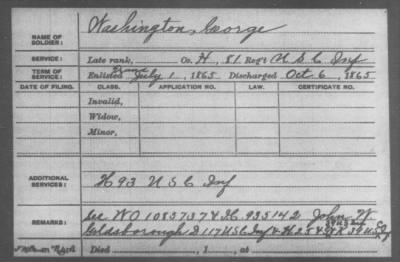 NAME OF SOLDIER: Washington, George
SERVICE: Late rank, Co. H, 81 Reg't U S C Inf
TERM OF SERVICE: Enlisted July 1, 1865 Discharged Oct 6, 1865
DATE OF FILING. CLASS. APPLICATION NO. LAW. CERTIFICATE NO.
Invalid,
Widow,
Minor,
ADDITIONAL SERVICES: H 93 U S C Inf
REMARKS: See WO 1085737 & IC 935142 John W
Goldsborough D 117 USC Inf & H 25 &
Died , 1 , at